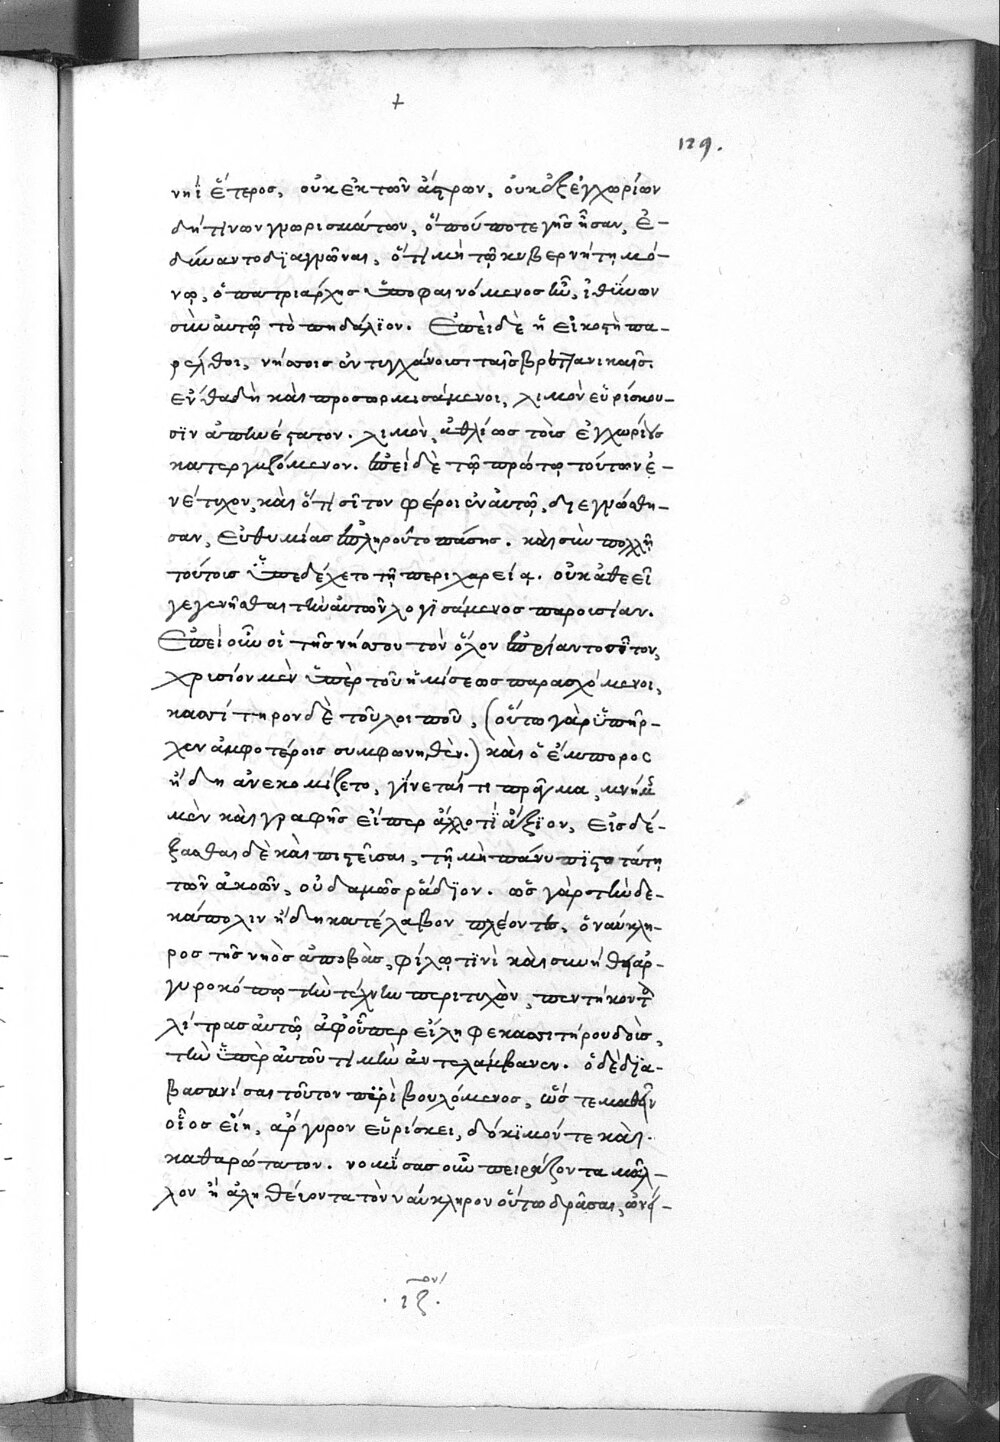 +
129.
νηῒ ἕτερος, οὐκ ἐκ τῶν ἄστρων, οὐκ ἐξ ἐγχωρίων
δή τινων γνωρισμάτων, ὅπου ποτὲ γῆς ἦσαν, ἐ-
δύναντο διαγνῶναι, ὅτι μὴ τῷ κυβερνήτῃ μό-
νῳ, ὁ πατριάρχης ὑποφαινόμενος ἦν, ἰθύνων
σὺν αὐτῷ τὸ πηδάλιον. Ἐπεὶ δὲ ἡ εἰκοστὴ πα-
ρέλθοι, νήσοις ἐντυγχάνουσι ταῖς Βρεττανικαῖς.
ἐνθαδὴ καὶ προσορμισάμενοι, λιμὸν εὑρίσκου-
σϊν ἀπηνέστατον. λιμὸν, ἀθλίως τοῖς ἐγχωρίοις
κατεργαζόμενον. ἐπεὶ δὲ τῷ πρώτῳ τούτων ἐ-
νέτυχον, καὶ ὅτι σῖτον φέροιεν αὐτῷ, διεγνώσθη-
σαν, εὐθυμίας ἐπληροῦτο πάσης. καὶ σὺν πολλῇ
τούτοις ὑπεδέχετο τῇ περιχαρείᾳ. οὐκ ἀθεεὶ
γεγενῆσθαι τὴν αὐτῶν λογισάμενος παρουσίαν.
Ἐπεὶ οὖν οἱ τῆς νήσου τὸν ὅλον ἐπρίαντο σῖτον,
χρυσίον μὲν ὑπὲρ τοῦ ἡμίσεως παρασχόμενοι,
κασσίτηρον δὲ τοῦ λοιποῦ, (οὕτω γὰρ ὑπῆρ-
χεν ἀμφοτέροις συμφωνηθὲν.) καὶ ὁ ἔμπορος
ἤδη ἀνεκομίζετο, γίνεταί τι πρᾶγμα, μνήμης
μὲν καὶ γραφῆς εἴπερ ἄλλό τι ἄξιον, εἰσδέ-
ξασθαι δὲ καὶ πιστεῦσαι, τῇ μὴ πάνυ πιστοτάτῃ
τῶν ἀκοῶν, οὐδαμῶς ῥᾴδιον. ὡς γὰρ τὴν δε-
κάπολιν ἤδη κατέλαβον πλέοντες, ὁ ναύκλη-
ρος τῆς νηὸς ἀποβὰς, φίλῳ τινὶ καὶ συνήθη ἀρ-
γυροκόπῳ τὴν τέχνην περιτυχὼν, πεντήκοντα
λίτρας αὐτῷ ἀφ' οὗπερ εἴληφε κασσιτήρου δοὺς,
τὴν ὑπὲρ αὐτοῦ τιμὴν ἀντελάμβανεν. ὁ δὲ δια-
βασανίσαι τοῦτον πυρὶ βουλόμενος, ὥς τε μαθεῖν
οἷος εἴη, ἄργυρον εὑρίσκει, δόκιμόν τε καὶ
καθαρώτατον. νομίσας οὖν πειράζοντα μᾶλ-
λον ἢ ἀληθεύοντα τὸν ναύκληρον οὕτω δρᾶσαι,
. ιζον.